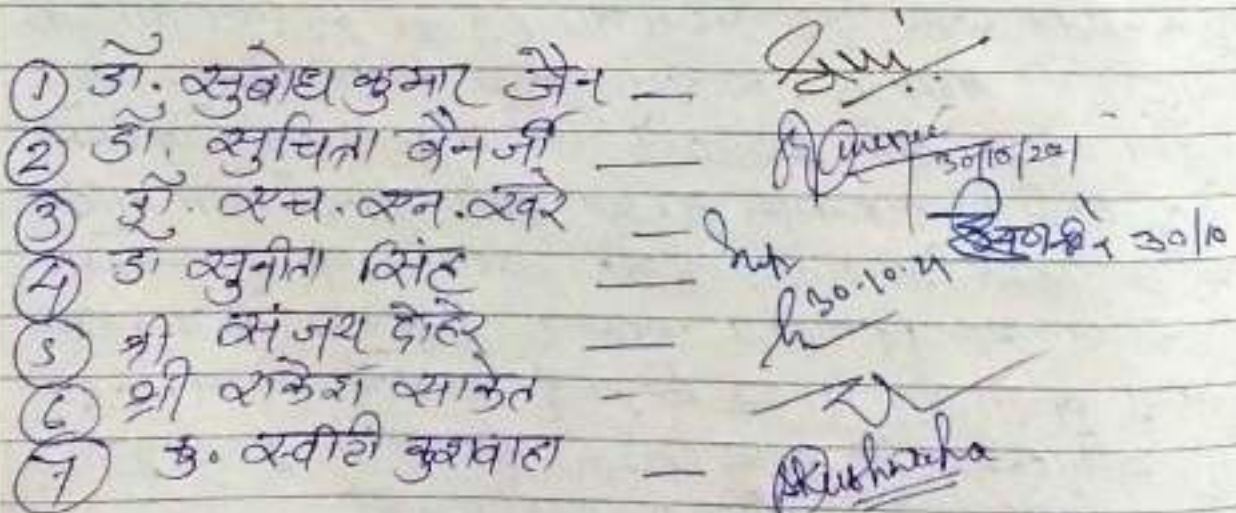 ① डॉ. सुबोध कुमार जैन —
② डॉ. सुचिता बैनर्जी — 30/10/2021
③ डॉ. एच. एन. खरे — 30/10
④ डॉ सुनीता सिंह — 30.10.21
⑤ श्री संजय दोहरे —
⑥ श्री राकेश साकेत -
⑦ कु. स्वीटी कुशवाहा — SKushwaha